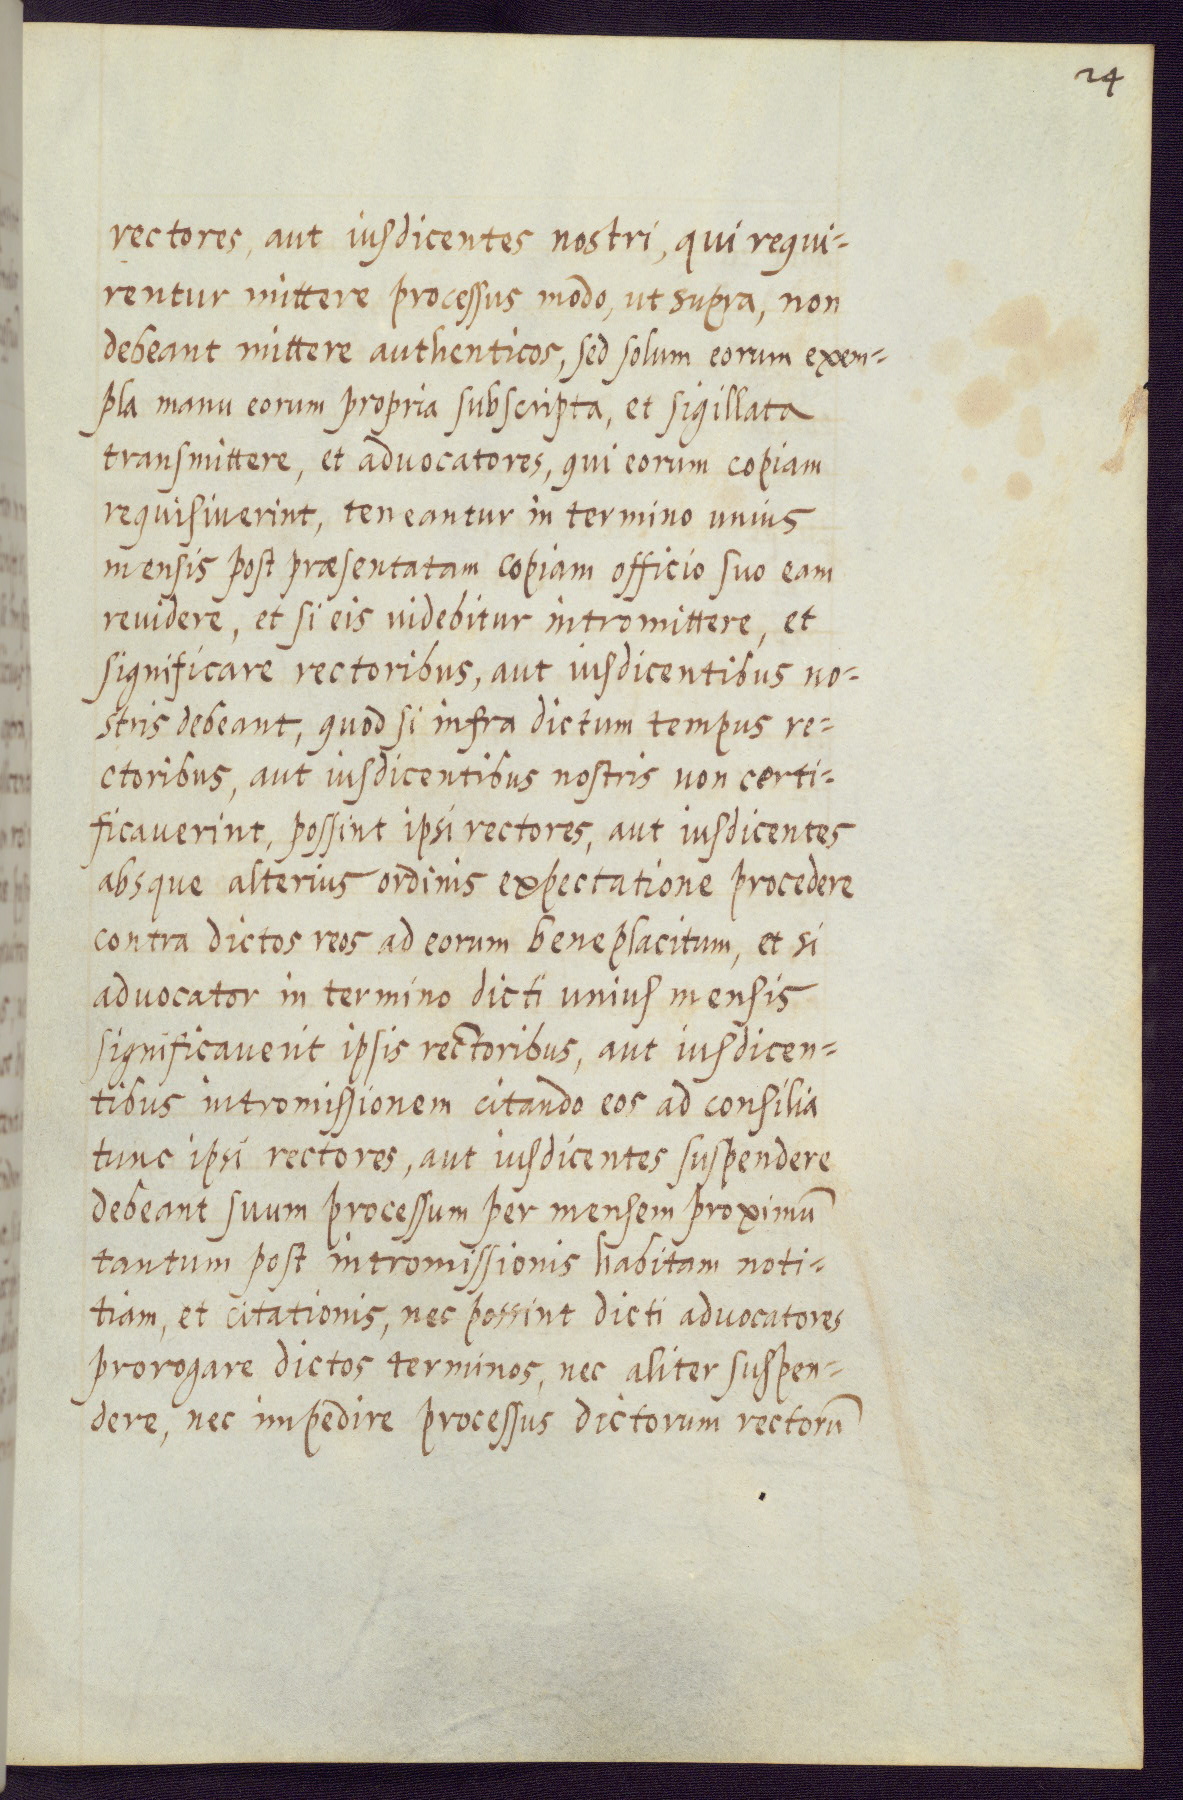 24
rectores, aut iusdicentes nostri, qui requi-
rentur mittere processus modo, ut supra, non
debeant mittere authenticos, sed solum eorum exem-
pla manu eorum propria subscripta, et sigillata
transmittere, et advocatores, qui eorum copiam
requisiverint, teneantur in termino unius
mensis post præsentatam copiam officio suo eam
revidere, et si eis videbitur intromittere, et
significare rectoribus, aut iusdicentibus no-
stris debeant, quod si infra dictum tempus re-
ctoribus, aut iusdicentibus nostris non certi-
ficaverint, possint ipsi rectores, aut iusdicentes
absque alterius ordinis expectatione procedere
contra dictos reos ad eorum beneplacitum, et si
advocator in termino dicti unius mensis
significaverit ipsis rectoribus, aut iusdicen-
tibus intromissionem citando eos ad consilia
tunc ipsi rectores, aut iusdicentes suspendere
debeant suum processum per mensem proximū
tantum post intromissionis habitam noti-
tiam, et citationis, nec possint dicti advocatores
prorogare dictos terminos, nec aliter suspen-
dere, nec impedire processus dictorum rectorū